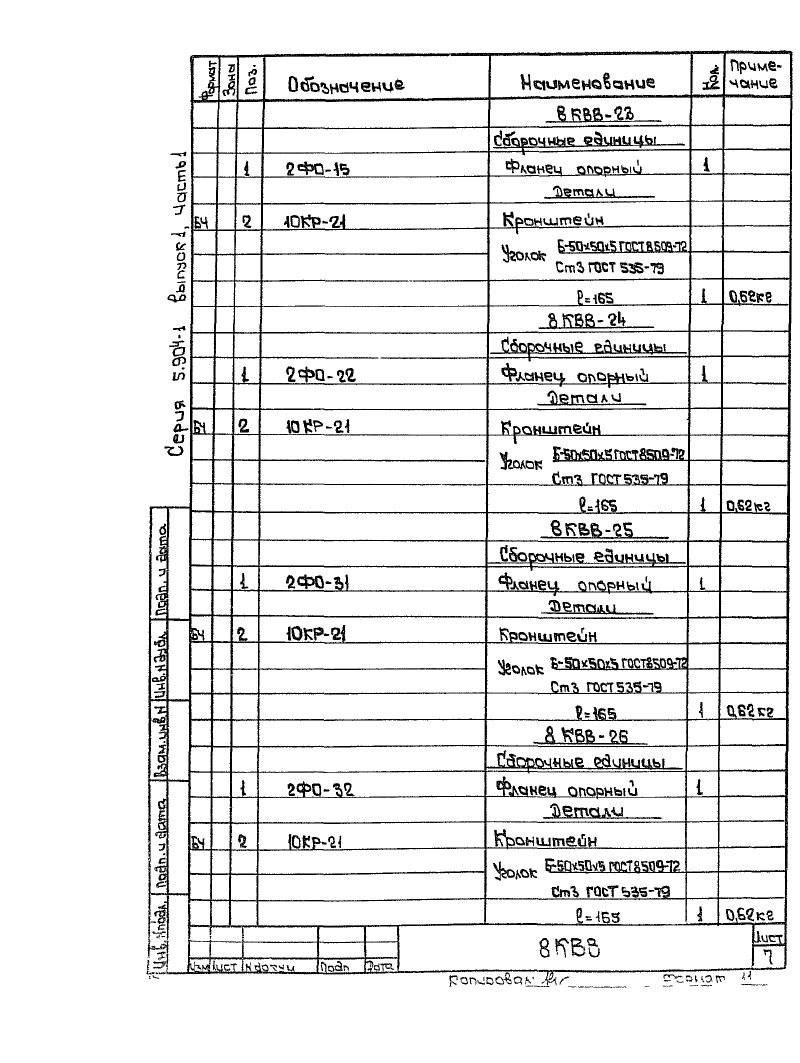 Формат Зона Поз. Обозначение Наименование Кол. Приме-
чание
8КВВ-23
Сборочные единицы
1 2ФО-15 Фланец опорный 1
Детали
БЧ 2 10КР-21 Кронштейн
Уголок Б-50х50х5 ГОСТ 8509-72
Ст3 ГОСТ 535-79
ℓ=165 1 0,62кг
8КВВ-24
Сборочные единицы
1 2ФО-22 Фланец опорный 1
Детали
БЧ 2 10КР-21 Кронштейн
Уголок Б-50х50х5 ГОСТ 8509-72
Ст3 ГОСТ 535-79
ℓ=165 1 0,62кг
8КВВ-25
Сборочные единицы
1 2ФО-31 Фланец опорный 1
Детали
БЧ 2 10КР-21 Кронштейн
Уголок Б-50х50х5 ГОСТ 8509-72
Ст3 ГОСТ 535-79
ℓ=165 1 0,62кг
8КВВ-26
Сборочные единицы
1 2ФО-32 Фланец опорный 1
Детали
БЧ 2 10КР-21 Кронштейн
Уголок Б-50х50х5 ГОСТ 8509-72
Ст3 ГОСТ 535-79
ℓ=165 1 0,62кг
Серия 5.904-1 Выпуск 1, часть 1
Инв. № подл. Подп. и дата Взам. инв № Инв. № дубл. Подп. и дата
Изм Лист № докум Подп Дата
8КВВ
Лист
7
Копировал: Формат 11